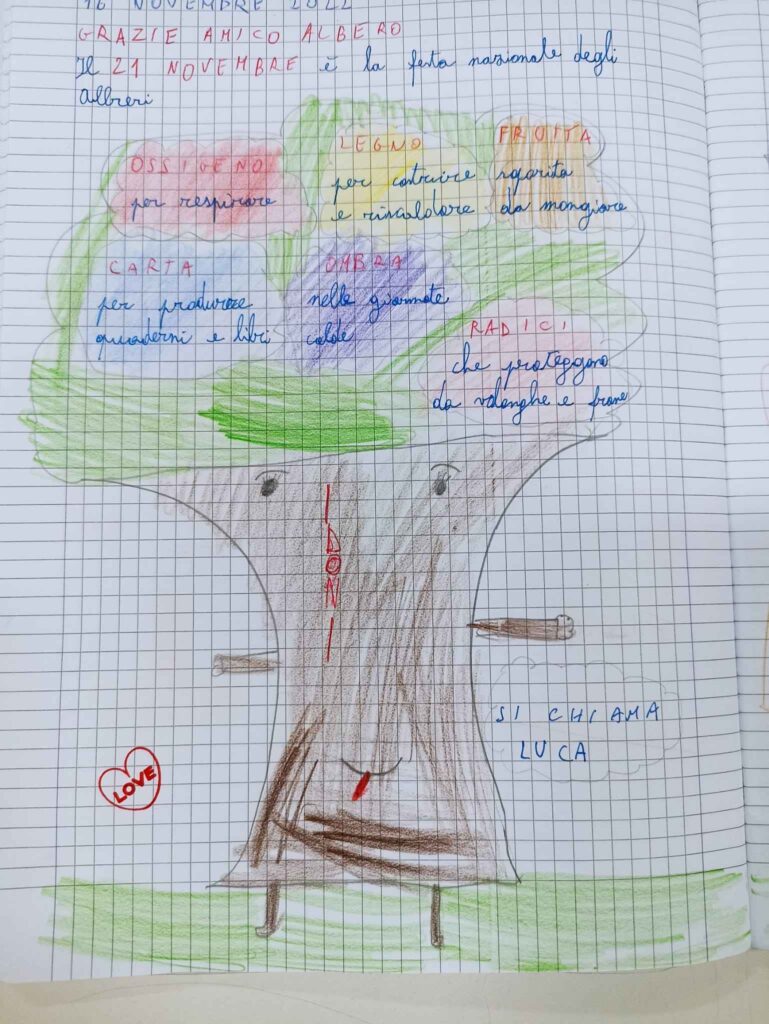 16 NOVEMBRE 2022
GRAZIE AMICO ALBERO
Il 21 NOVEMBRE è la festa nazionale degli
alberi
OSSIGENO
per respirare
LEGNO
per costruire
e riscaldare
FRUTTA
da mangiare
CARTA
per produrre
quaderni e libri
OMBRA
nelle giornate
calde
RADICI
che proteggono
da valanghe e frane
I DONI
SI CHIAMA
LUCA
LOVE